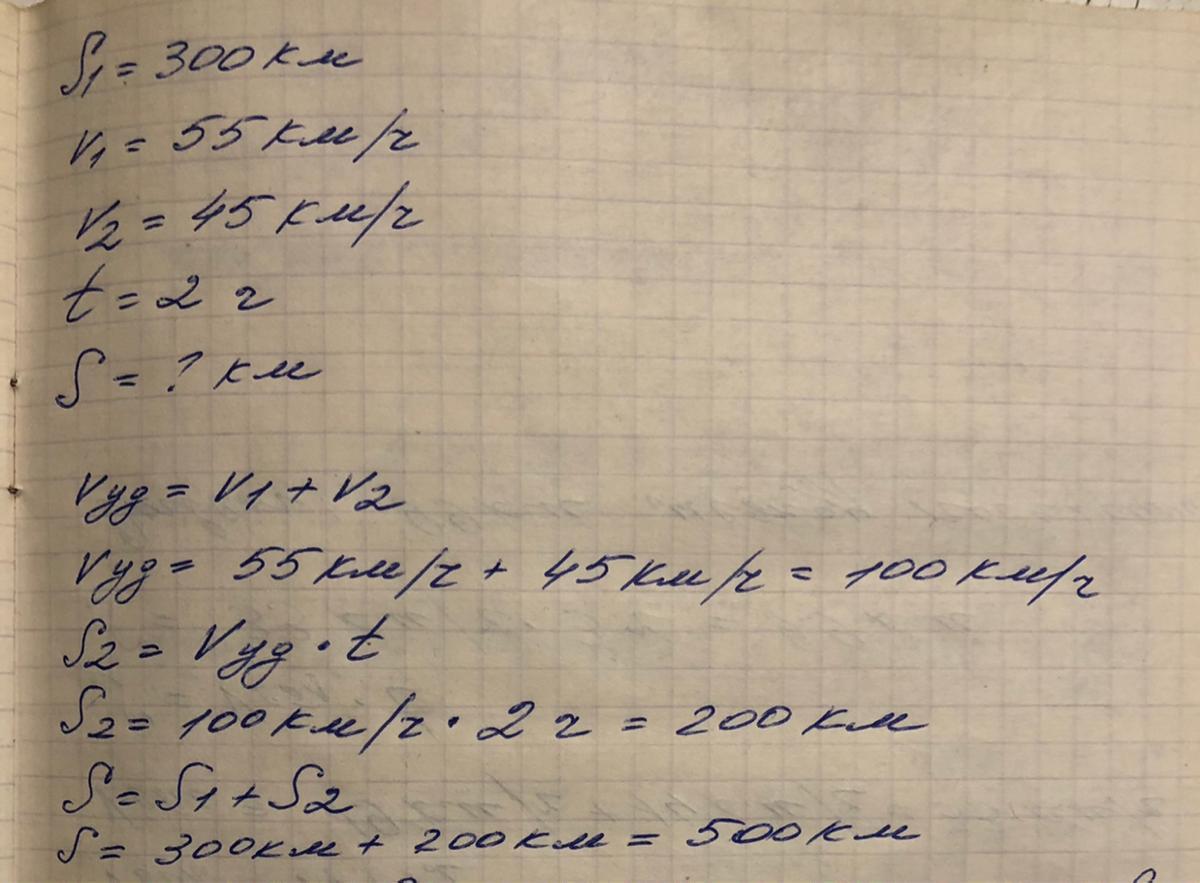 S1 = 300 км
V1 = 55 км/ч
V2 = 45 км/ч
t = 2 ч
S = ? км
Vуд = V1 + V2
Vуд = 55 км/ч + 45 км/ч = 100 км/ч
S2 = Vуд · t
S2 = 100 км/ч · 2 ч = 200 км
S = S1 + S2
S = 300 км + 200 км = 500 км